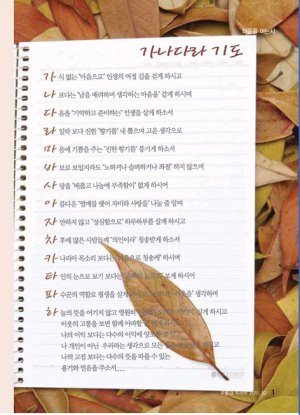 마음을 여는 시
가나다라 기도
가 식 없는 "마음으로" 인생의 여정 길을 걷게 하시고
나 보다는 "남을 배려하며 생각하는 마음을" 갖게 하시며
다 음을 "기약하고 준비하는" 인생을 살게 하소서
라 일락 보다 진한 "향기를" 내 뿜으며 고운 생각으로
마 음에 기쁨을 주는 "진한 향기를" 풍기게 하소서
바 보로 보일지라도 "노하거나 슬퍼하거나 좌절" 하지 않으며
사 랑을 "베풀고 나눔에 부족함이" 없게 하시어
아 름다운 "열매를 맺어 자비와 사랑을" 나눌 줄 알며
자 만하지 않고 "성실함으로" 하루하루를 살게 하시고
차 후에 많은 사람들께 "의인이라" 칭송받게 하소서
카 나라아 목소리 보다는 칭송케" 하시며
타 인의 눈으로 보기 보다는 보게 하시어
파 수꾼의 역할로 평생을 살게 생각하며
하 늘의 뜻을 어기지 않고 영원히 살게 하시고
이웃의 고통을 보면 함께 아파할 하시고
나의 이익 보다는 다수의 이익에
나 개인이 아닌 우리라는 생각으로 모든
나의 고집 보다는 다수의 뜻을 따를 수 있는
용기와 믿음을 주소서.....
1